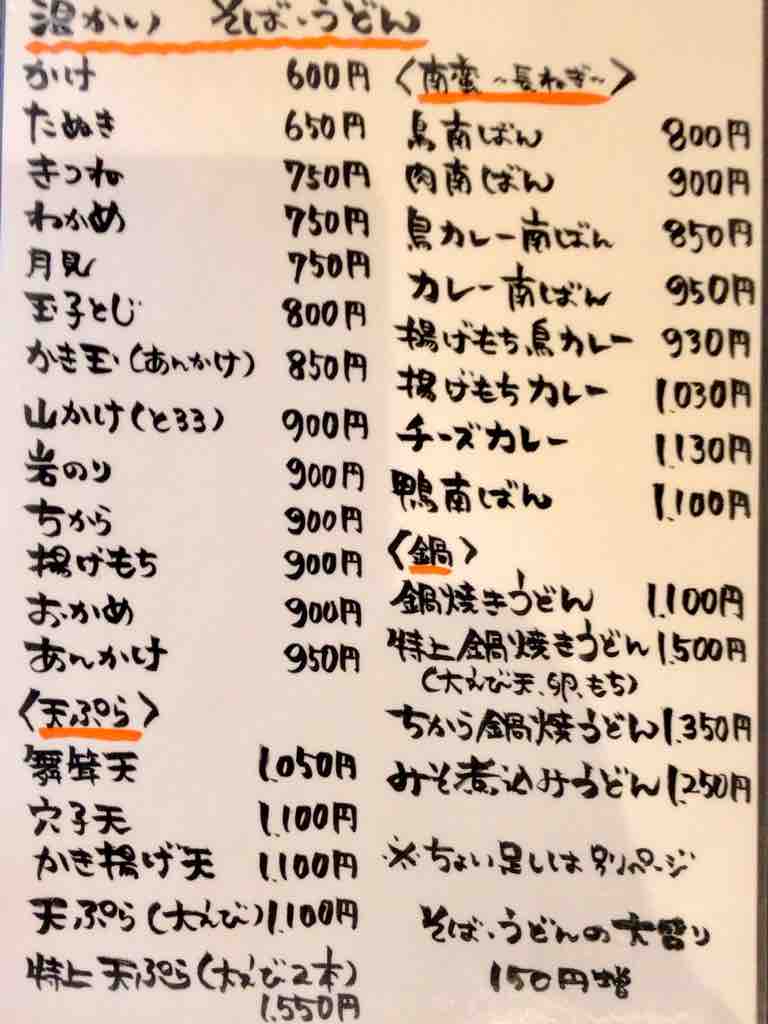 温かい そば・うどん
かけ 600円
たぬき 650円
きつね 750円
わかめ 750円
月見 750円
玉子とじ 800円
かき玉(あんかけ) 850円
山かけ(とろろ) 900円
岩のり 900円
ちから 900円
揚げもち 900円
おかめ 900円
あんかけ 950円
〈天ぷら〉
舞茸天 1,050円
穴子天 1,100円
かき揚げ天 1,100円
天ぷら(大えび) 1,100円
特上天ぷら(大えび2本)
1,550円
〈南蛮 ~長ねぎ~〉
鳥南ばん 800円
肉南ばん 900円
鳥カレー南ばん 850円
カレー南ばん 950円
揚げもち鳥カレー 930円
揚げもちカレー 1,030円
チーズカレー 1,130円
鴨南ばん 1,100円
〈鍋〉
鍋焼きうどん 1,100円
特上鍋焼きうどん 1,500円
(大えび天、卵、もち)
ちから鍋焼うどん 1,350円
みそ煮込みうどん 1,250円
※ちょい足しは別ページ
そば・うどんの大盛り
150円増